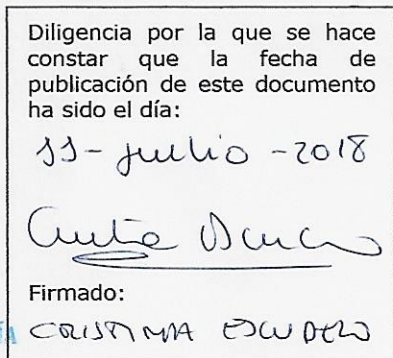 Diligencia por la que se hace
constar que la fecha de
publicación de este documento
ha sido el día:
11-julio-2018
Firmado:
CRISTINA ESCUDERO